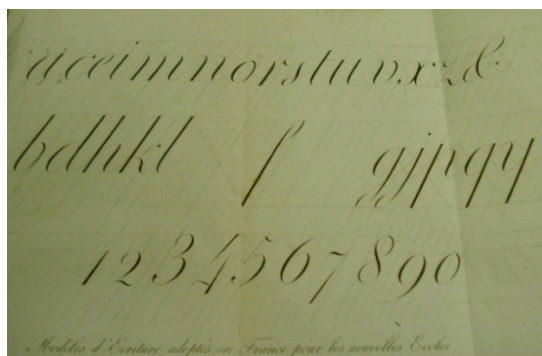 aceimnorstuvxz&
bdhkl f gjpqy
1234567890
Modèles d'Ecriture adoptés en France pour les nouvelles Ecoles